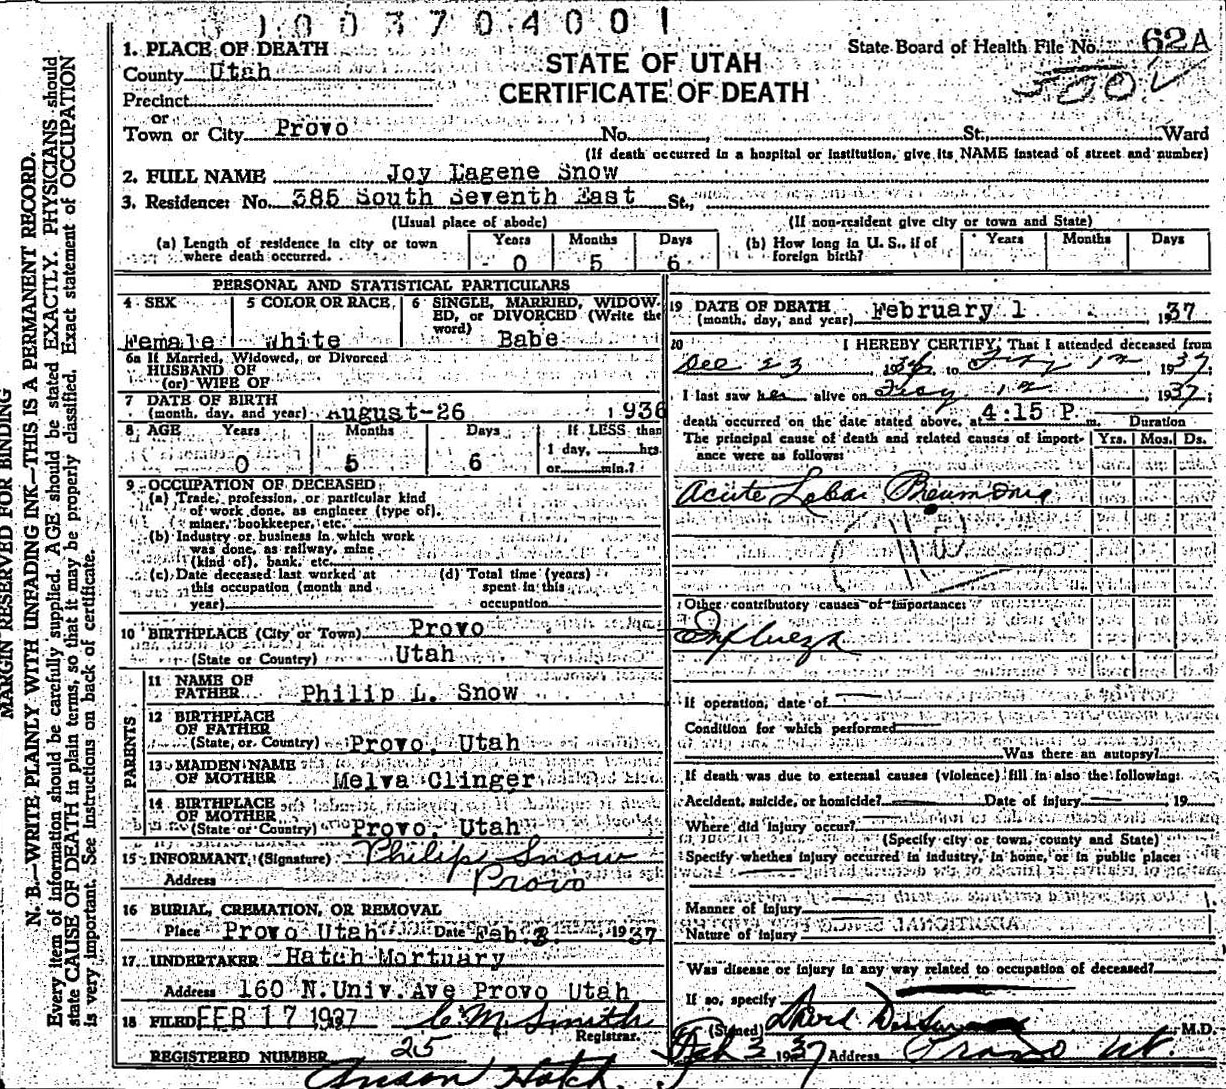 0 1 8 0 3 7 0 4 0 0 1
1. PLACE OF DEATH
State Board of Health File No. 62A
County Utah
STATE OF UTAH
Precinct
CERTIFICATE OF DEATH
or
Town or City Provo No. , St., Ward
(If death occurred in a hospital or institution, give its NAME instead of street and number)
2. FULL NAME Joy Lagene Snow
3. Residence: No. 385 South Seventh East St.,
(Usual place of abode) (If non-resident give city or town and State)
(a) Length of residence in city or town where death occurred. Years 0 Months 5 Days 6
(b) How long in U. S., if of foreign birth? Years Months Days
PERSONAL AND STATISTICAL PARTICULARS
4 SEX Female
5 COLOR OR RACE White
6 SINGLE, MARRIED, WIDOWED, or DIVORCED (Write the word) Babe
6a If Married, Widowed, or Divorced
HUSBAND OF
(or) WIFE OF
7 DATE OF BIRTH
(month, day, and year) August-26 1936
8 AGE Years 0 Months 5 Days 6
If LESS than
1 day, hrs.
or min.?
9 OCCUPATION OF DECEASED:
(a) Trade, profession, or particular kind
of work done, as engineer (type of),
miner, bookkeeper, etc.
(b) Industry or business in which work
was done, as railway, mine
(kind of), bank, etc.
(c) Date deceased last worked at
this occupation (month and
year)
(d) Total time (years)
spent in this
occupation
10 BIRTHPLACE (City or Town) Provo
(State or Country) Utah
PARENTS
11 NAME OF
FATHER Philip L. Snow
12 BIRTHPLACE
OF FATHER
(State, or Country) Provo, Utah
13 MAIDEN NAME
OF MOTHER Melva Clinger
14 BIRTHPLACE
OF MOTHER
(State or Country) Provo, Utah
15 INFORMANT, (Signature) Philip Snow
Address Provo
16 BURIAL, CREMATION, OR REMOVAL
Place Provo Utah Date Feb. 3 1937
17 UNDERTAKER Hatch Mortuary
Address 160 N. Univ. Ave Provo Utah
18 FILED FEB 17 1937 C. M. Smith
Registrar.
REGISTERED NUMBER 25
Anson Hatch
19 DATE OF DEATH
(month, day, and year) February 1 , 1937
20 I HEREBY CERTIFY, That I attended deceased from
Dec 23 1936, to 1937;
I last saw her alive on 1937;
death occurred on the date stated above, at 4:15 P. m.
The principal cause of death and related causes of importance were as follows:
Duration
Yrs. Mos. Ds.
Acute Lobar Pneumonia
Other contributory causes of importance:
Influenza
If operation, date of
Condition for which performed
Was there an autopsy?
If death was due to external causes (violence) fill in also the following:
Accident, suicide, or homicide? Date of injury , 19
Where did injury occur?
(Specify city or town, county and State)
Specify whether injury occurred in industry, in home, or in public place:
Manner of injury
Nature of injury
Was disease or injury in any way related to occupation of deceased?
If so, specify
(Signed) M.D.
Feb 3 1937 Address Provo Ut.
MARGIN RESERVED FOR BINDING
N. B.—WRITE PLAINLY WITH UNFADING INK—THIS IS A PERMANENT RECORD.
Every item of information should be carefully supplied. AGE should be stated EXACTLY. PHYSICIANS should
state CAUSE OF DEATH in plain terms, so that it may be properly classified. Exact statement of OCCUPATION
is very important. See instructions on back of certificate.